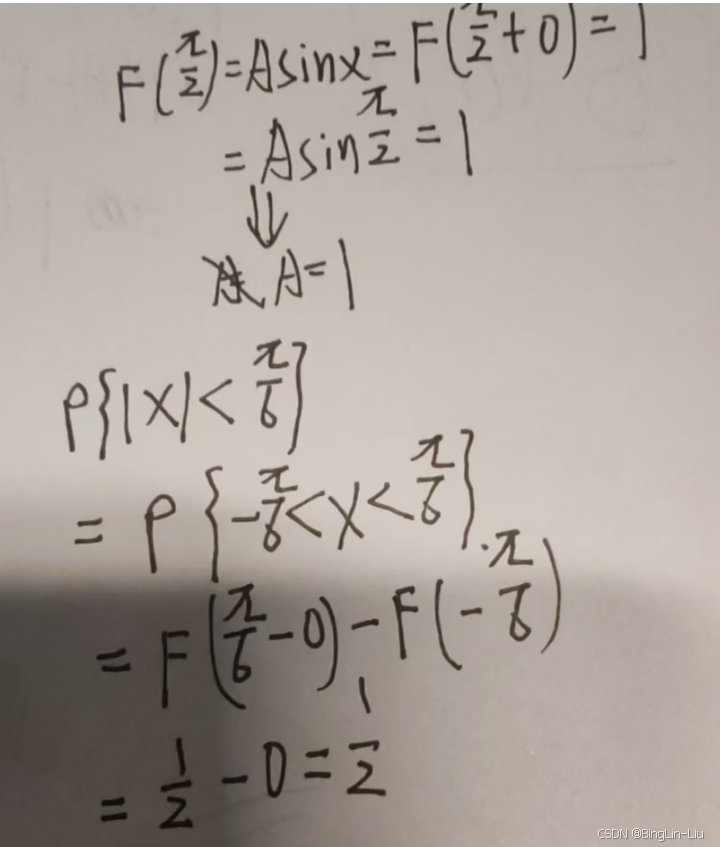 F(π/2)=Asinx=F(π/2+0)=1
=Asinπ/2=1
⇓
A=1
P{|X|<π/6}
=P{-π/6<X<π/6}
=F(π/6-0)-F(-π/6)
=1/2-0=1/2
CSDN @BingLin-Liu